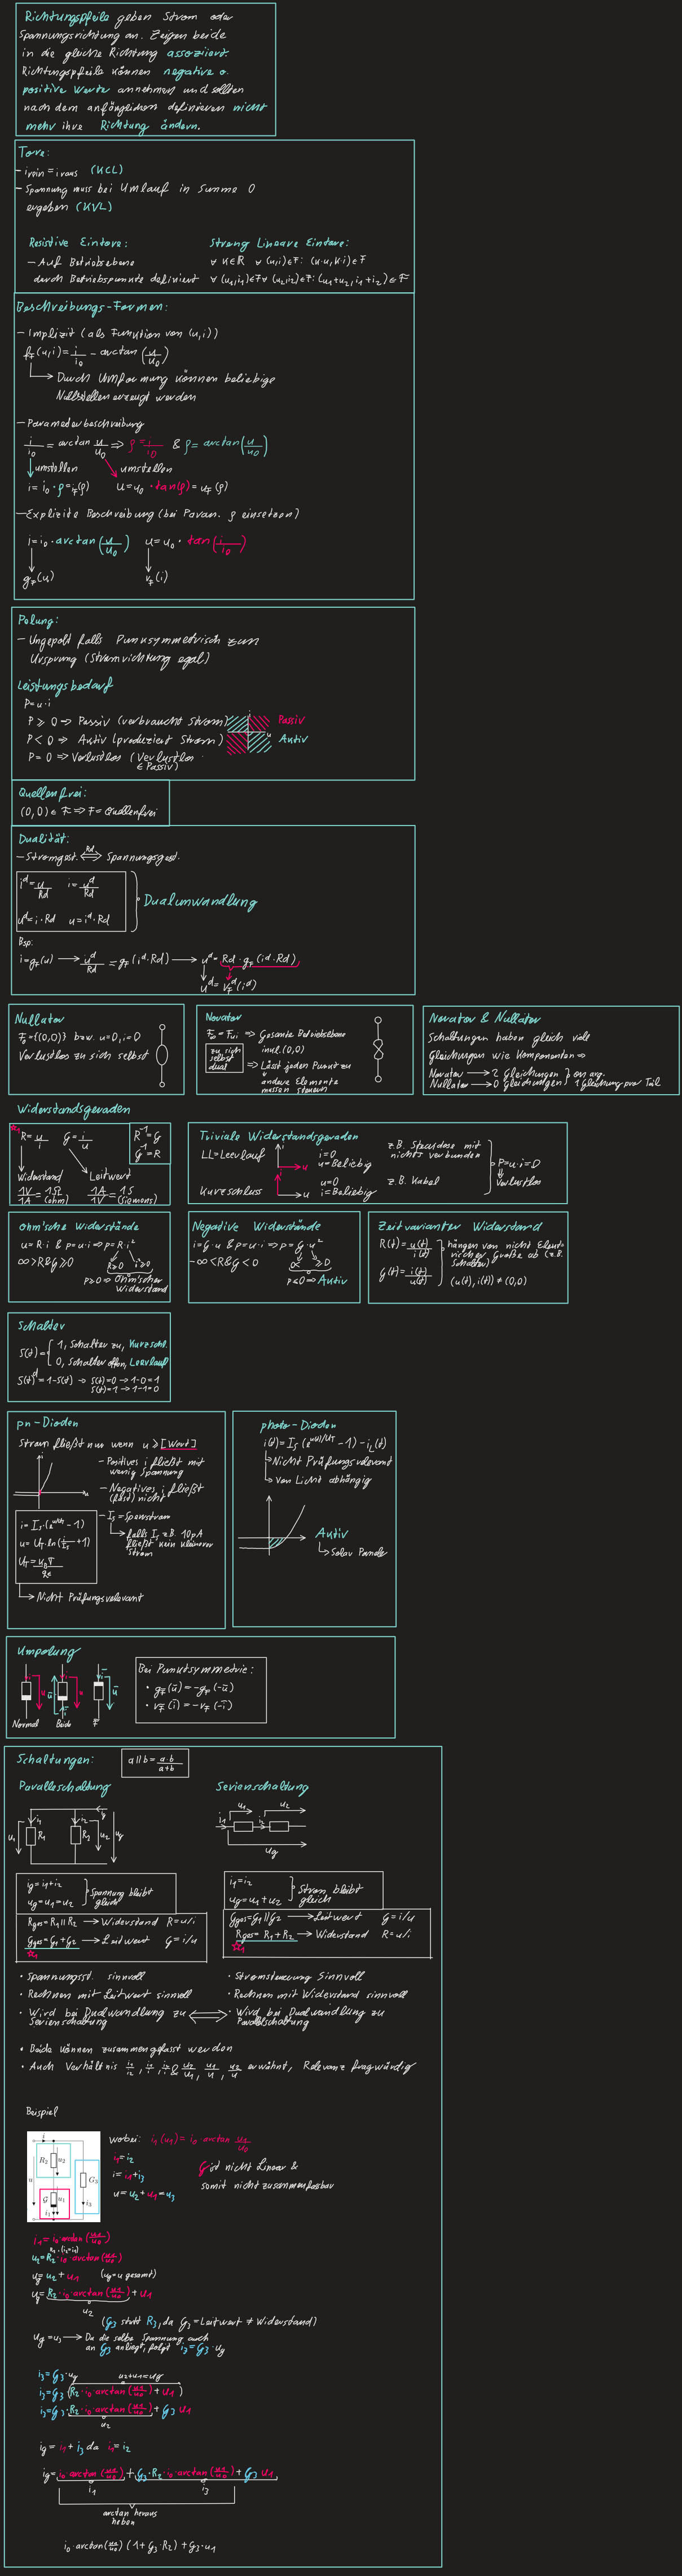 Richtungspfeile geben Strom oder
Spannungsrichtung an. Zeigen beide
in die gleiche Richtung assoziiert.
Richtungspfeile können negative o.
positive Werte annehmen und sollten
nach dem anfänglichen definieren nicht
mehr ihre Richtung ändern.
Tore:
- irein = iraus (KCL)
- Spannung muss bei Umlauf in Summe 0
ergeben (KVL)
Resistive Eintore:
- Auf Betriebsebene
durch Betriebspunkte definiert
Streng Lineare Eintore:
∀ K∈R ∀ (u,i)∈F: (K·u, K·i) ∈ F
∀ (u1,i1)∈F ∀ (u2,i2)∈F: (u1+u2, i1+i2) ∈ F
Beschreibungs-Formen:
- Implizit (als Funktion von (u,i))
fF(u,i) = i/i0 - arctan(u/u0)
Durch Umformung können beliebige
Nullstellen erzeugt werden
- Parameterbeschreibung
i/i0 = arctan u/u0 => ρ = i/i0 & ρ = arctan(u/u0)
umstellen umstellen
i = i0·ρ = iF(ρ) u = u0·tan(ρ) = uF(ρ)
- Explizite Beschreibung (bei Param. ρ einsetzen)
i = i0·arctan(u/u0) u = u0·tan(i/i0)
gF(u) rF(i)
Polung:
- Ungepolt falls Punksymmetrisch zum
Ursprung (Stromrichtung egal)
Leistungsbedarf
P = u·i
P ≥ 0 => Passiv (verbraucht Strom)
P < 0 => Aktiv (produziert Strom)
P = 0 => Verlustlos (Verlustlos
∈ Passiv)
i
u
Passiv
Aktiv
Quellenfrei:
(0,0) ∈ F => F = Quellenfrei
Dualität:
- Stromgest. <=> Spannungsgest.
Rd
i^d = u/Rd i = u^d/Rd
u^d = i·Rd u = i^d·Rd
Dualumwandlung
Bsp:
i = gF(u) → u^d/Rd = gF(i^d·Rd) → u^d = Rd·gF(i^d·Rd)
u^d = rF^d(i^d)
Nullator
F = {(0,0)} bzw. u=0, i=0
Verlustlos zu sich selbst
Norator
F∞ = Fui => Gesamte Betriebsebene
inkl. (0,0)
zu sich
selbst
dual
=> Lässt jeden Punkt zu
andere Elemente
müssen steuern
Norator & Nullator
Schaltungen haben gleich viele
Gleichungen wie Komponenten =>
Nullator → 2 Gleichungen
Norator → 0 Gleichungen
1 Gleichung pro Teil
Widerstandsgeraden
1
R = u/i G = i/u
R^-1 = G
G^-1 = R
Widerstand Leitwert
1V/1A = 1Ω (ohm) 1A/1V = 1S (Siemens)
Triviale Widerstandsgeraden
LL = Leerlauf
i=0
u = Beliebig
z.B. Steckdose mit
nichts verbunden
Kurzschluss
u=0
i = Beliebig
z.B. Kabel
P = u·i = 0
Verlustlos
Ohm'sche Widerstände
u = R·i & p = u·i => p = R·i²
∞ > R & G ≥ 0
R≥0 i²≥0
p≥0 => Ohm'scher
Widerstand
Negative Widerstände
i = G·u & p = u·i => p = G·u²
-∞ < R & G < 0
0< ≥0
p≤0 => Aktiv
Zeitvarianter Widerstand
R(t) = u(t)/i(t)
G(t) = i(t)/u(t)
hängen von nicht Elekt-
rischer Größe ab (z.B.
Schalter)
(u(t), i(t)) ≠ (0,0)
Schalter
S(t) = { 1, Schalter zu, Kurzschl.
0, Schalter offen, Leerlauf
S(t)^d = 1-S(t) → S(t)=0 → 1-0=1
S(t)=1 → 1-1=0
pn-Dioden
Strom fließt nur wenn u ≥ [Wert]
- Positives i fließt mit
wenig Spannung
- Negatives i fließt
(fast) nicht
i = Is·(e^(u/UT) - 1)
u = UT·ln(i/Is + 1)
UT = kBT/qe
- Is = Sperrstrom
falls Is z.B. 10pA
fließt kein kleinerer
Strom
Nicht Prüfungsrelevant
photo-Dioden
i(t) = Is(e^(u(t)/UT) - 1) - iL(t)
Nicht Prüfungsrelevant
Von Licht abhängig
Aktiv
Solar Panele
Umpolung
Normal
Beide
F
Bei Punktsymmetrie:
• gF(ū) = -gF(-ū)
• rF(ī) = -rF(-ī)
Schaltungen:
a||b = a·b/a+b
Paralleschaltung
Serienschaltung
u1 i1 R1 i2 R2 u2 ug
i1 u1 i2 u2
ug
ig = i1+i2
ug = u1 = u2
Spannung bleibt
gleich
i1 = i2
ug = u1+u2
Strom bleibt
gleich
Rges = R1||R2 → Widerstand R = u/i
Gges = G1+G2 → Leitwert G = i/u
1
Gges = G1||G2 → Leitwert G = i/u
Rges = R1+R2 → Widerstand R = u/i
1
• Spannungsst. sinnvoll
• Rechnen mit Leitwert sinnvoll
• Wird bei Dualwandlung zu
Serienschaltung
• Stromsteuerung Sinnvoll
• Rechnen mit Widerstand sinnvoll
• Wird bei Dualwandlung zu
Parallelschaltung
• Beide können zusammengefasst werden
• Auch Verhältnis i1/i2, i1/i, i2/i & u2/u1, u1/u, u2/u erwähnt, Relevanz fragwürdig
Beispiel
i
R2 u2
u
G u1
i1
G3
i3
wobei: i1(u1) = i0·arctan u1/u0
i1 = i2
i = i1+i3
u = u2+u1 = u3
G ist nicht Linear &
somit nicht zusammenfassbar
i1 = i0·arctan(u1/u0)
R2·(i2=i1)
u2 = R2·i0·arctan(u1/u0)
ug = u2+u1 (ug = u gesamt)
ug = R2·i0·arctan(u1/u0) + u1
u2
(G3 statt R3, da G3 = Leitwert ≠ Widerstand)
ug = u3 → Da die selbe Spannung auch
an G3 anliegt, folgt i3 = G3·ug
i3 = G3·ug
u2+u1=ug
i3 = G3(R2·i0·arctan(u1/u0) + u1)
i3 = G3·R2·i0·arctan(u1/u0) + G3·u1
u2
ig = i1+i3 da i1=i2
ig = i0·arctan(u1/u0) + G3·R2·i0·arctan(u1/u0) + G3·u1
i1
i3
arctan heraus
heben
i0·arctan(u1/u0)(1+G3·R2) + G3·u1